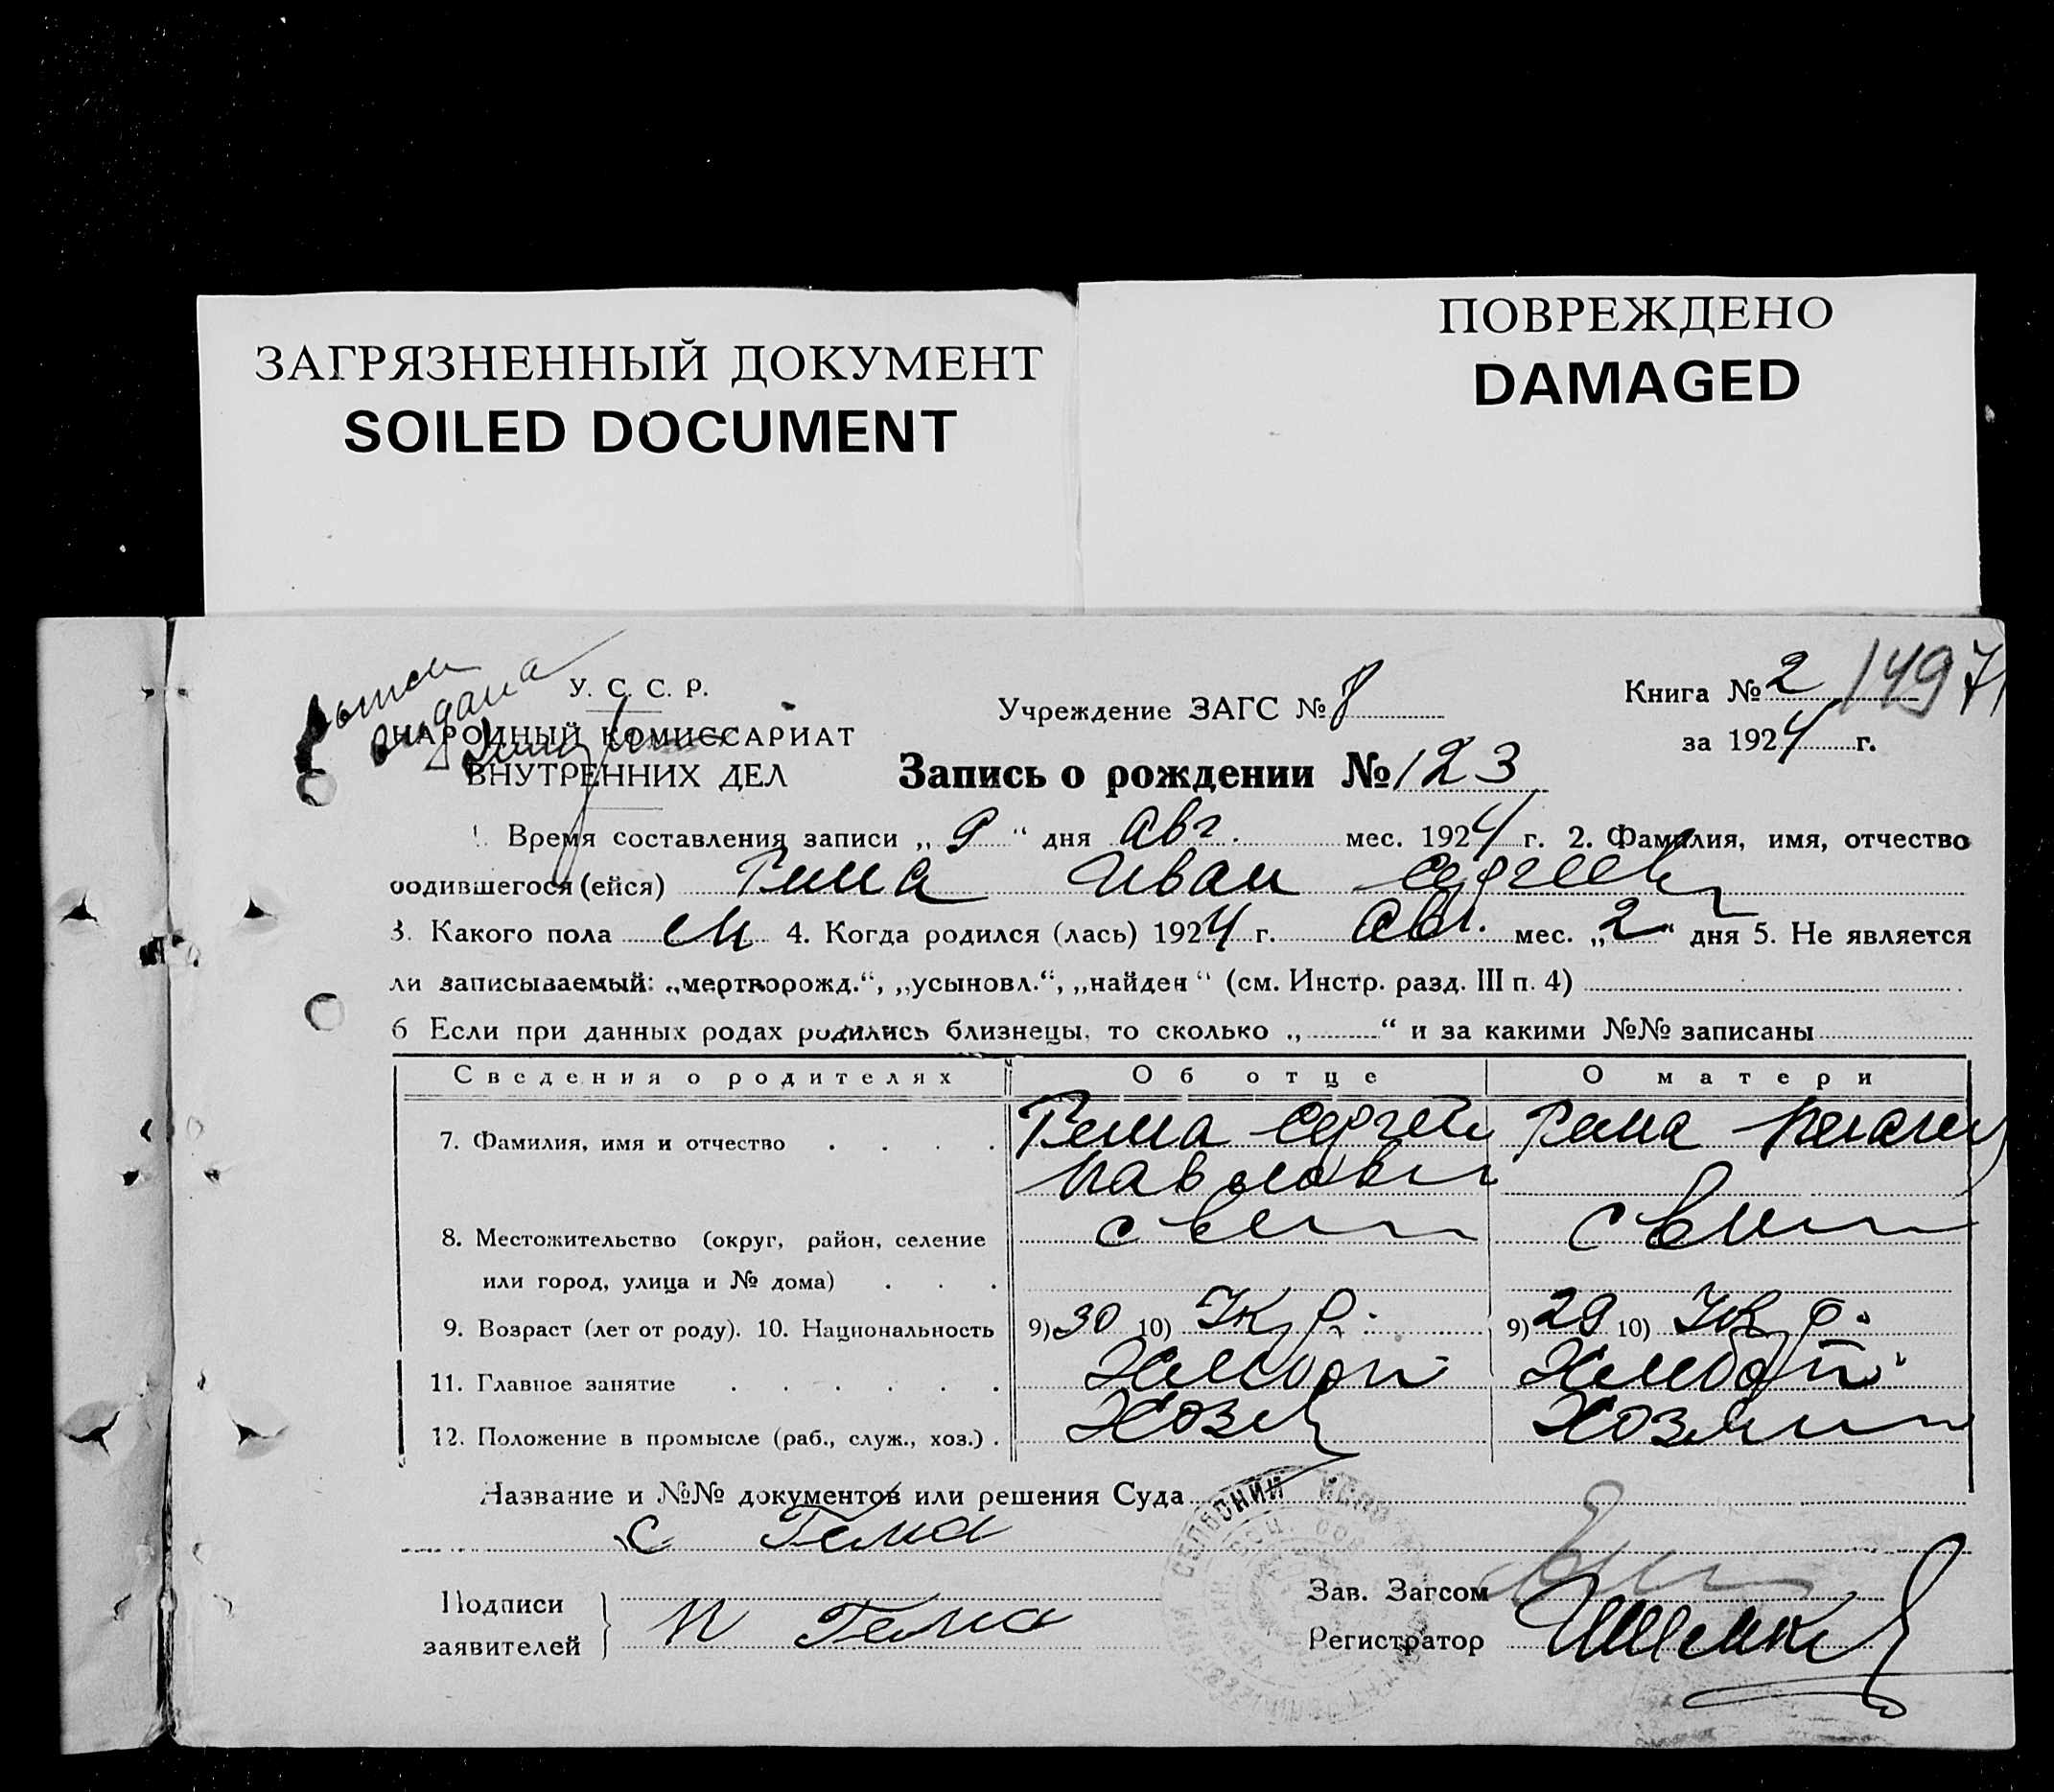 ЗАГРЯЗНЕННЫЙ ДОКУМЕНТ
SOILED DOCUMENT
ПОВРЕЖДЕНО
DAMAGED
выдана
У. С. С. Р.
НАРОДНЫЙ КОМИССАРИАТ
ВНУТРЕННИХ ДЕЛ
Учреждение ЗАГС №
Книга № 2 1497
за 1924 г.
Запись о рождении № 123
1. Время составления записи „ 9 “ дня авг. мес. 1924 г. 2. Фамилия, имя, отчество
родившегося (ейся) Гема Иван Сергеев
3. Какого пола м 4. Когда родился (лась) 1924 г. авг. мес. „ 2 “ дня 5. Не является
ли записываемый: „мертворожд.“, „усыновл.“, „найден“ (см. Инстр. разд. III п. 4)
6 Если при данных родах родились близнецы, то сколько „ “ и за какими №№ записаны
Сведения о родителях Об отце О матери
7. Фамилия, имя и отчество Гема Сергей Гема
Павлович
8. Местожительство (округ, район, селение
или город, улица и № дома)
9. Возраст (лет от роду). 10. Национальность 9) 30 10) Укр. 9) 28 10) Укр.
11. Главное занятие Хлебороб
12. Положение в промысле (раб., служ., хоз.)
Название и №№ документов или решения Суда
С Гема
Подписи
заявителей
П Гема
Зав. Загсом
Регистратор